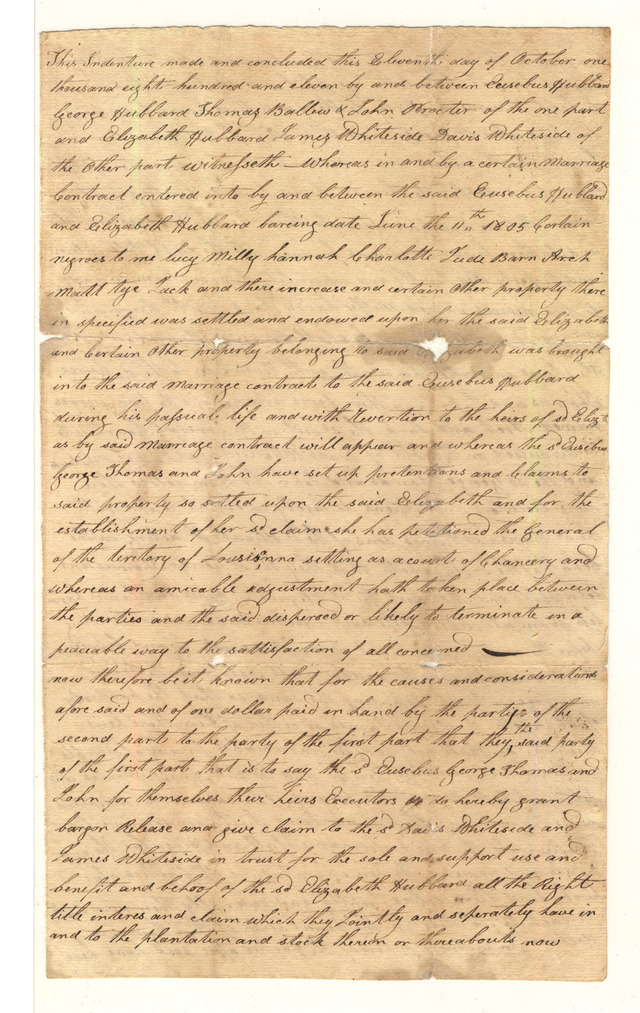 This Indenture made and concluded this Eleventh day of October one
thousand eight hundred and eleven by and between Eusebus Hubbard
George Hubbard Thomas Ballew & John Procter of the one part
and Elizabeth Hubbard James Whiteside Davis Whiteside of
the Other part witnesseth — Whereas in and by a certain Marriage
Contract entered into by and between the said Eusebus Hubbard
and Elizabeth Hubbard bareing date June the 11th 1805 Certain
negroes to me lucy Milly hannah Charlotte Jude Barn Arch
Matt Jack and there increase and certain Other property there
in specified was settled and endowed upon her the said Elizabeth
and Certain Other property belonging to said Elizabeth was brought
into the said Marriage contract to the said Eusebus Hubbard
during his life and with Revertion to the heirs of sd Elizth
as by said Marriage contract will appear and whereas the sd Eusibus
George Thomas and John have set up pretentions and Claims to
said property so settled upon the said Elizabeth and for the
establishment of her sd claim she has petitioned the General
of the teritory of Louisianna sitting as a court of Chancery and
whereas an amicable adjustment hath taken place between
the parties and the said dispersed or likely to terminate in a
peaceable way to the sattisfaction of all concerned —
now therefore be it known that for the causes and considerations
afore said and of one dollar paid in hand by the party of the
second part to the party of the first part that they the said party
of the first part that is to say the sd Eusebus George Thomas and
John for themselves their heirs Executors do hereby grant
bargon Release and give claim to the sd Davis Whiteside and
James Whiteside in trust for the sole and support use and
benefit and behoof of the sd Elizabeth Hubbard all the Right
title interes and claim which they Jointly and seperately have in
and to the plantation and stock thereon or thereabouts now